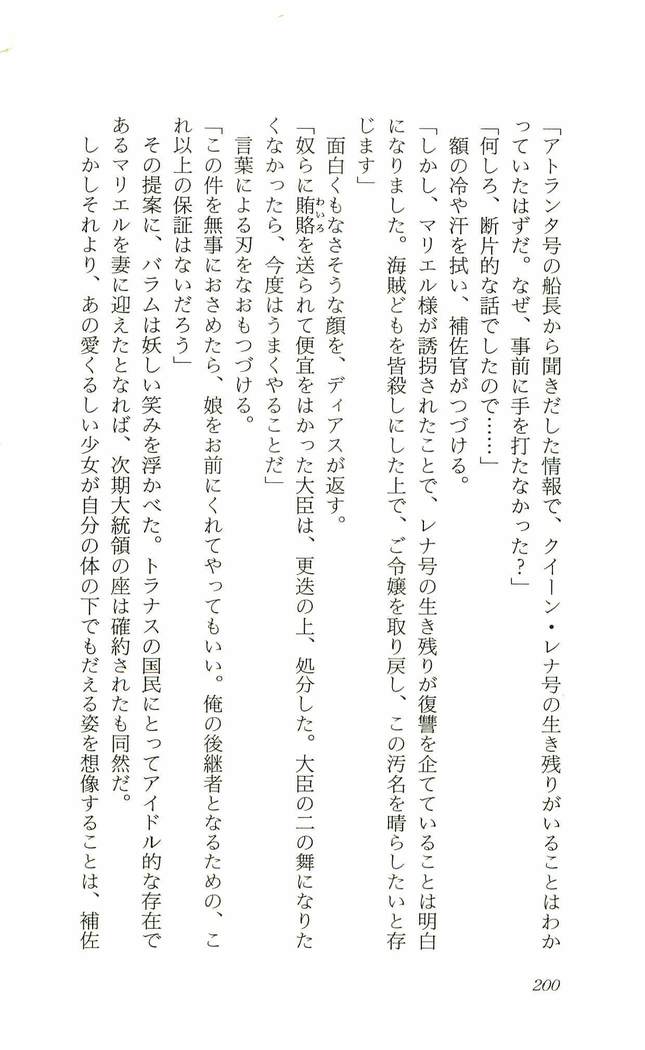 「アトランタ号の船長から聞きだした情報で、クイーン・レナ号の生き残りがいることはわか
っていたはずだ。なぜ、事前に手を打たなかった？」
「何しろ、断片的な話でしたので……」
額の冷や汗を拭い、補佐官がつづける。
「しかし、マリエル様が誘拐されたことで、レナ号の生き残りが復讐を企てていることは明白
になりました。海賊どもを皆殺しにした上で、ご令嬢を取り戻し、この汚名を晴らしたいと存
じます」
面白くもなさそうな顔を、ディアスが返す。
「奴らに賄賂を送られて便宜をはかった大臣は、更迭の上、処分した。大臣の二の舞になりた
わいろ
くなかったら、今度はうまくやることだ」
言葉による刃をなおもつづける。
「この件を無事におさめたら、娘をお前にくれてやってもいい。俺の後継者となるための、こ
れ以上の保証はないだろう」
その提案に、バラムは妖しい笑みを浮かべた。トラナスの国民にとってアイドル的な存在で
あるマリエルを妻に迎えたとなれば、次期大統領の座は確約されたも同然だ。
しかしそれより、あの愛くるしい少女が自分の体の下でもだえる姿を想像することは、補佐
200